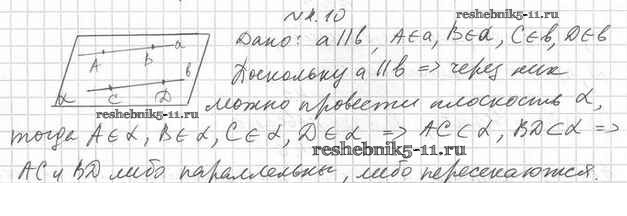 №4.10
reshebnik5-11.ru
Дано: a||b, A∈a, B∈a, C∈b, D∈b
a
A B
b
α C D
Поскольку a||b => через них
можно провести плоскость α,
тогда A∈α, B∈α, C∈α, D∈α => AC⊂α, BD⊂α =>
reshebnik5-11.ru
AC и BD либо параллельны, либо пересекаются.